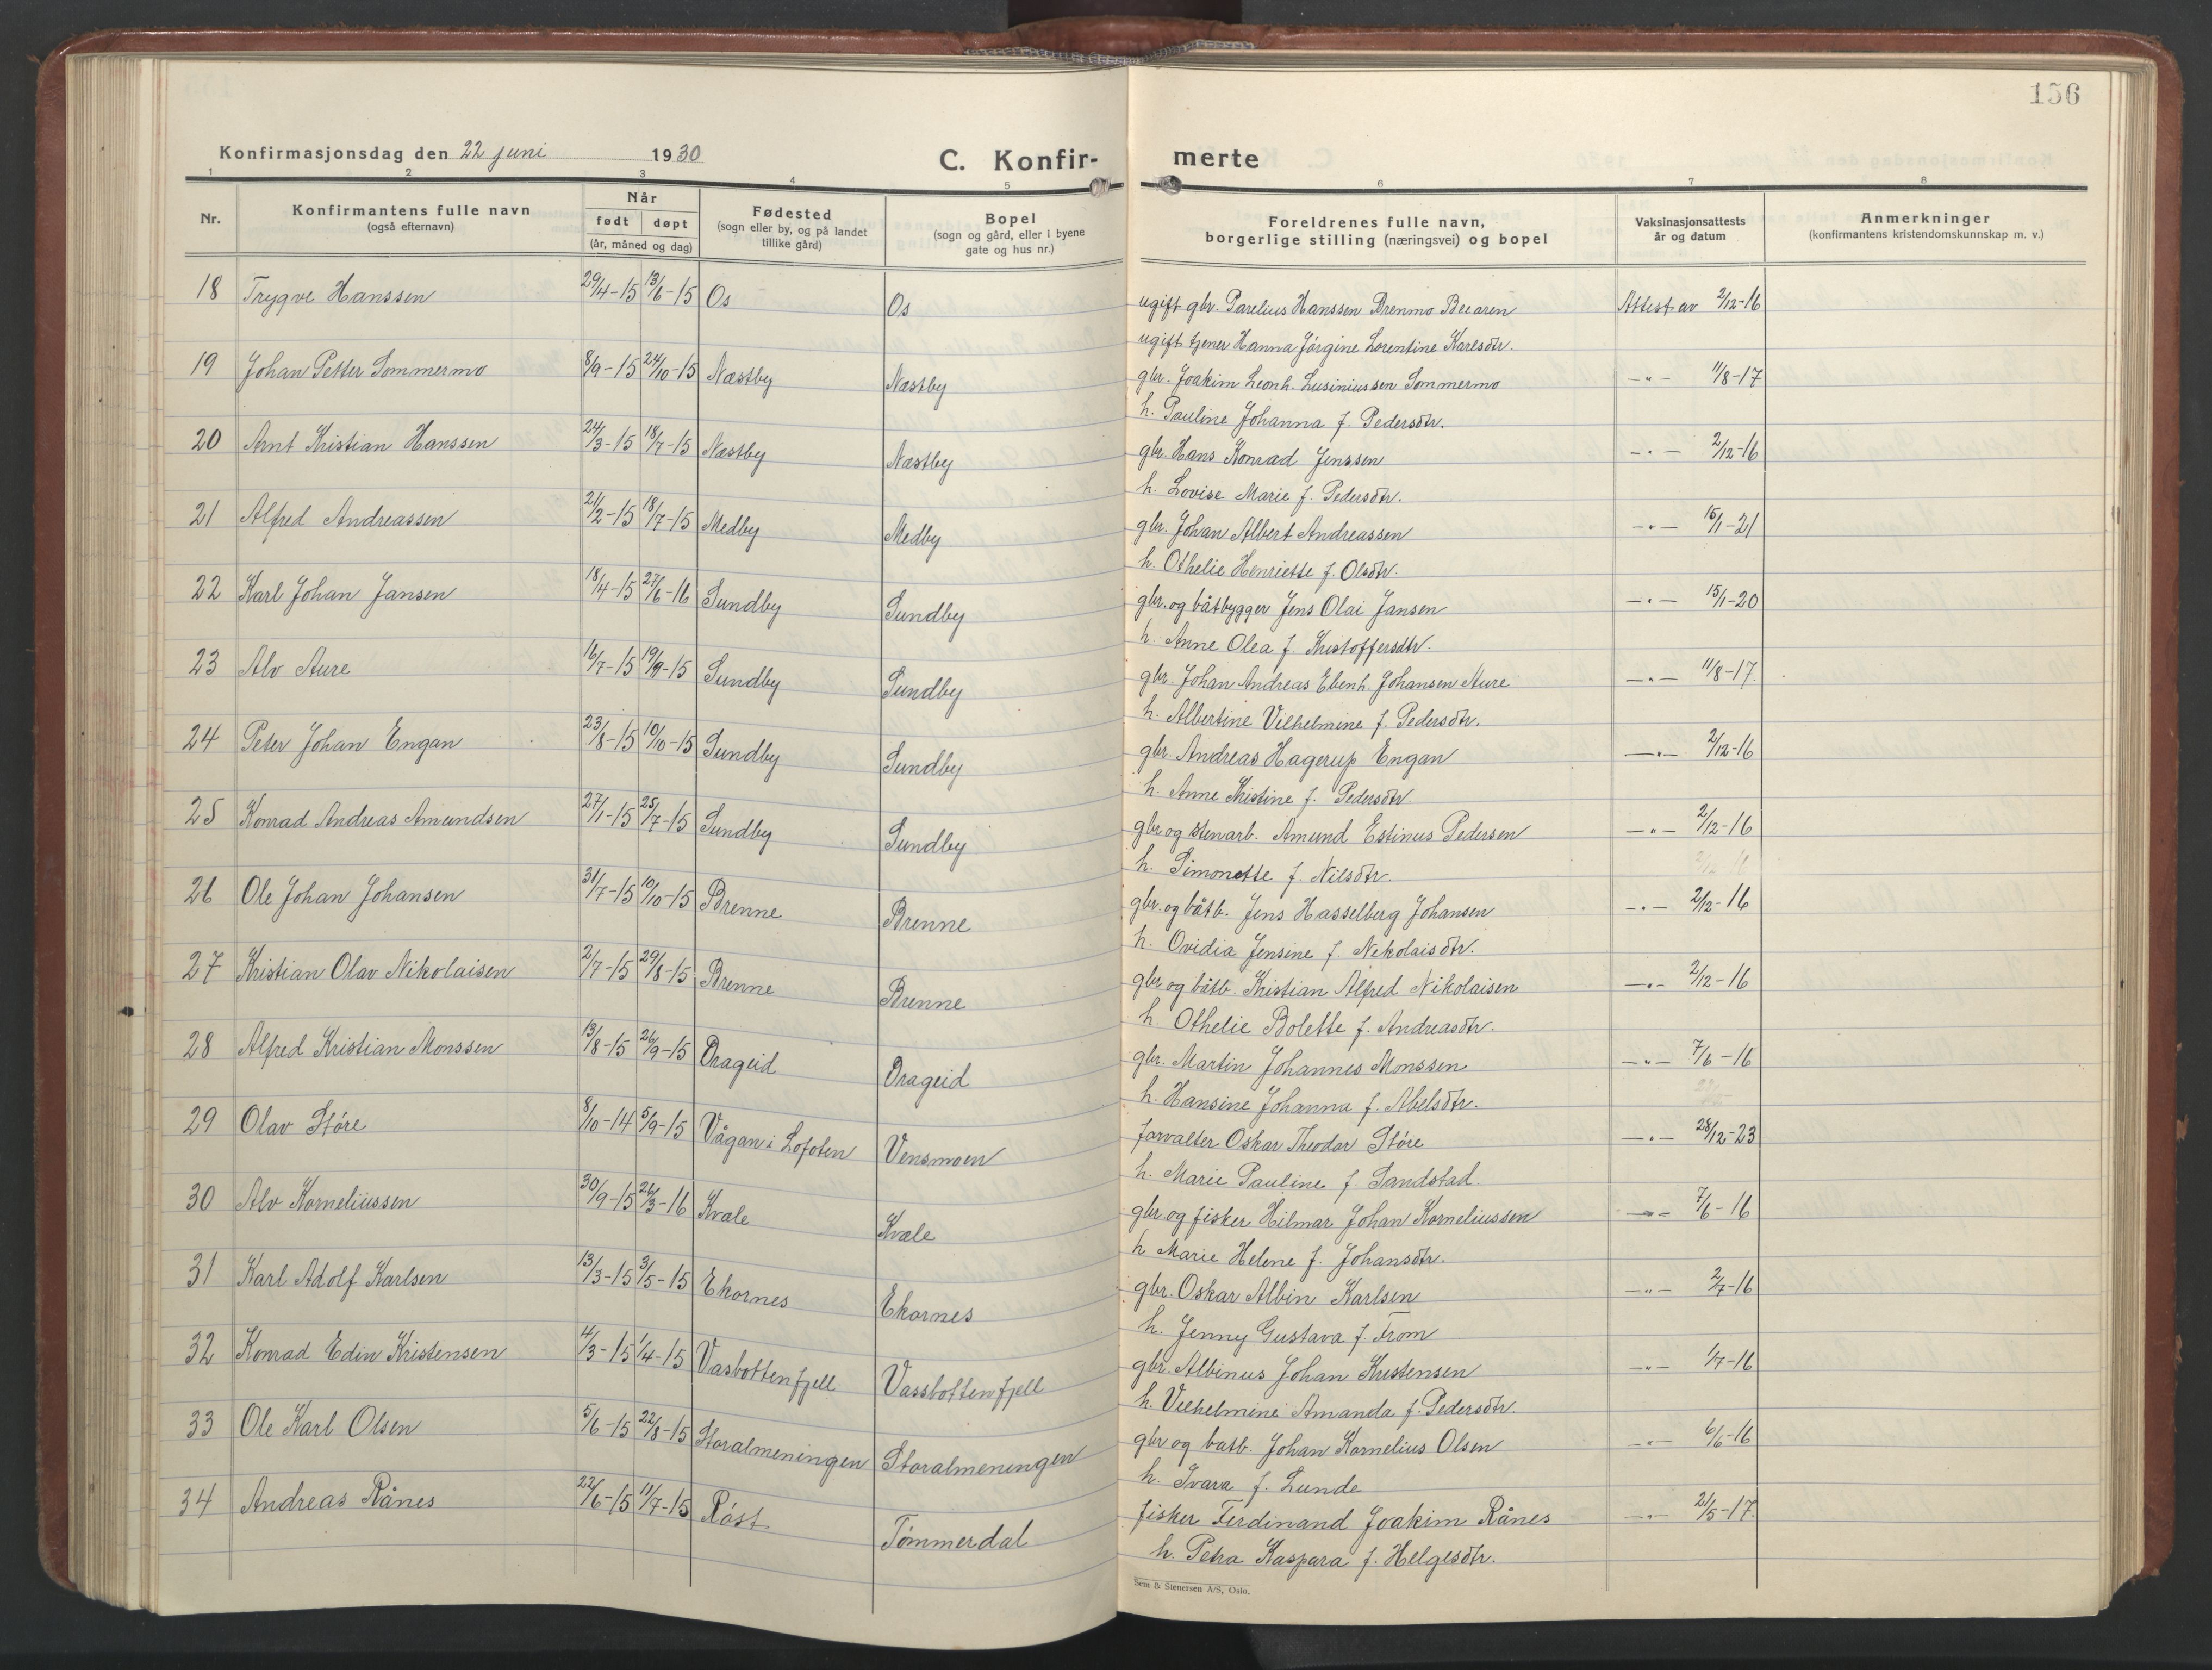 156
Konfirmasjonsdag den 22 juni 1930 C. Konfir- merte
1 2 3 4 5 6 7 8
Nr. Konfirmantens fulle navn (også efternavn) Når født døpt (år, måned og dag) Fødested (sogn eller by, og på landet tillike gård) Bopel (sogn og gård, eller i byene gate og hus nr.) Foreldrenes fulle navn, borgerlige stilling (næringsvei) og bopel Vaksinasjonsattests år og datum Anmerkninger (konfirmantens kristendomskunnskap m. v.)
18 Trygve Hanssen 29/4-15 13/6-15 Os Os ugift gbr. Parelius Hanssen Brenmo Beiaren Attest av 2/12-16
ugift tjener Hanna Jørgine Lorentine Karlsdtr.
19 Johan Petter Sommermo 8/9-15 24/10-15 Næstby Næstby gbr. Joakim Leonh. Lusiniussen Sommermo -"- 11/8-17
h. Pauline Johanna f. Pedersdtr.
20 Arnt Kristian Hanssen 24/3-15 18/7-15 Næstby Næstby gbr. Hans Konrad Jenssen -"- 2/12-16
h. Lovise Marie f. Pedersdtr.
21 Alfred Andreassen 21/2-15 18/7-15 Medby Medby gbr. Johan Albert Andreassen -"- 15/1-21
h. Othelie Henriette f. Olsdtr.
22 Karl Johan Jansen 18/4-15 27/6-16 Sundby Sundby gbr. og båtbygger Jens Olai Jansen -"- 15/1-20
h. Anne Olea f. Kristoffersdtr.
23 Alv Aure 16/7-15 19/9-15 Sundby Sundby gbr. Johan Andreas Ebenh. Johansen Aure -"- 11/8-17
h. Albertine Vilhelmine f. Pedersdtr.
24 Peter Johan Engan 23/8-15 10/10-15 Sundby Sundby gbr. Andreas Hagerup Engan -"- 2/12-16
h. Anne Kristine f. Pedersdtr.
25 Konrad Andreas Amundsen 27/1-15 25/7-15 Sundby Sundby gbr og stenarb. Amund Estinus Pedersen -"- 2/12-16
h. Simonette f. Nilsdtr.
26 Ole Johan Johansen 31/7-15 10/10-15 Brenne Brenne gbr. og båtb. Jens Hasselberg Johansen -"- 2/12-16
h. Ovidia Jensine f. Nekolaisdtr.
27 Kristian Olav Nikolaisen 2/7-15 29/8-15 Brenne Brenne gbr og båtb. Kristian Alfred Nikolaisen -"- 2/12-16
h. Othelie Bolette f. Andreasdtr.
28 Alfred Kristian Monssen 13/8-15 26/9-15 Drageid Drageid gbr. Martin Johannes Monssen -"- 7/6-16
h. Hansine Johanna f. Abelsdtr.
29 Olav Støre 8/10-14 5/9-15 Vågan i Lofoten Vensmoen forvalter Oskar Theodor Støre -"- 28/12-23
h. Marie Pauline f. Sandstad.
30 Alv Korneliussen 30/9-15 26/3-16 Kvale Kvæle gbr og fisker Hilmar Johan Korneliussen -"- 7/6-16
h Marie Helene f. Johansdtr.
31 Karl Adolf Karlsen 13/3-15 3/5-15 Ekornes Ekornes gbr. Oskar Albin Karlsen -"- 2/7-16
h. Jenny Gustava f. From
32 Konrad Edin Kristensen 4/3-15 1/4-15 Vasbottenfjell Vassbottenfjell gbr. Albinus Johan Kristensen -"- 1/7-16
h. Vilhelmine Amanda f. Pedersdtr.
33 Ole Karl Olsen 5/6-15 22/8-15 Storalmeningen Storalmeningen gbr og batb. Johan Kornelius Olsen -"- 6/6-16
h. Ivara f. Lunde
34 Andreas Rånes 22/6-15 11/7-15 Røst Tømmerdal fisker Ferdinand Joakim Rånes -"- 21/5-17
h. Petra Kaspara f. Helgesdtr.
Sem & Stenersen A/S, Oslo.